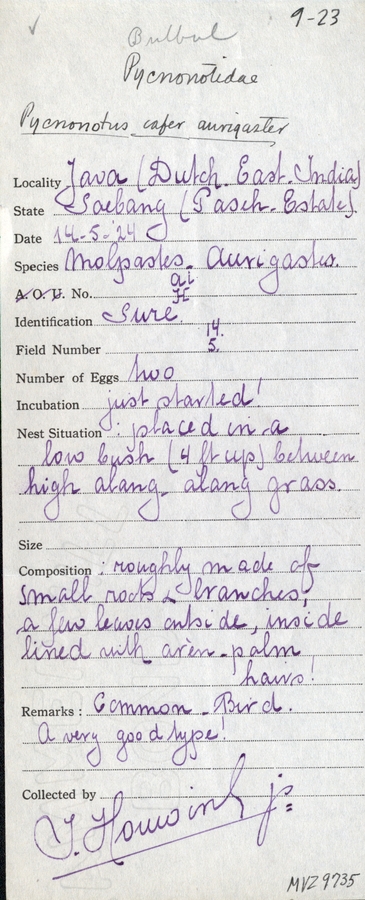 9-23
Bulbul
Pycnonotidae
Pycnonotus cafer aurigaster
Locality Java (Dutch. East. India)
State Soebang (Pasch. Estate).
Date 14-5-'24
Species Molpastes. Aurigaster.
A. O. U. No.
Identification Sure.
14.
Field Number 5.
Number of Eggs two
Incubation just started!
Nest Situation : placed in a
low bush (4 ft up) between
high alang-alang grass.
Size
Composition : roughly made of
small roots & branches,
a few leaves outside, inside
lined with aren-palm
hairs!
Remarks : Common-Bird.
A very good type!
Collected by
MVZ 9735